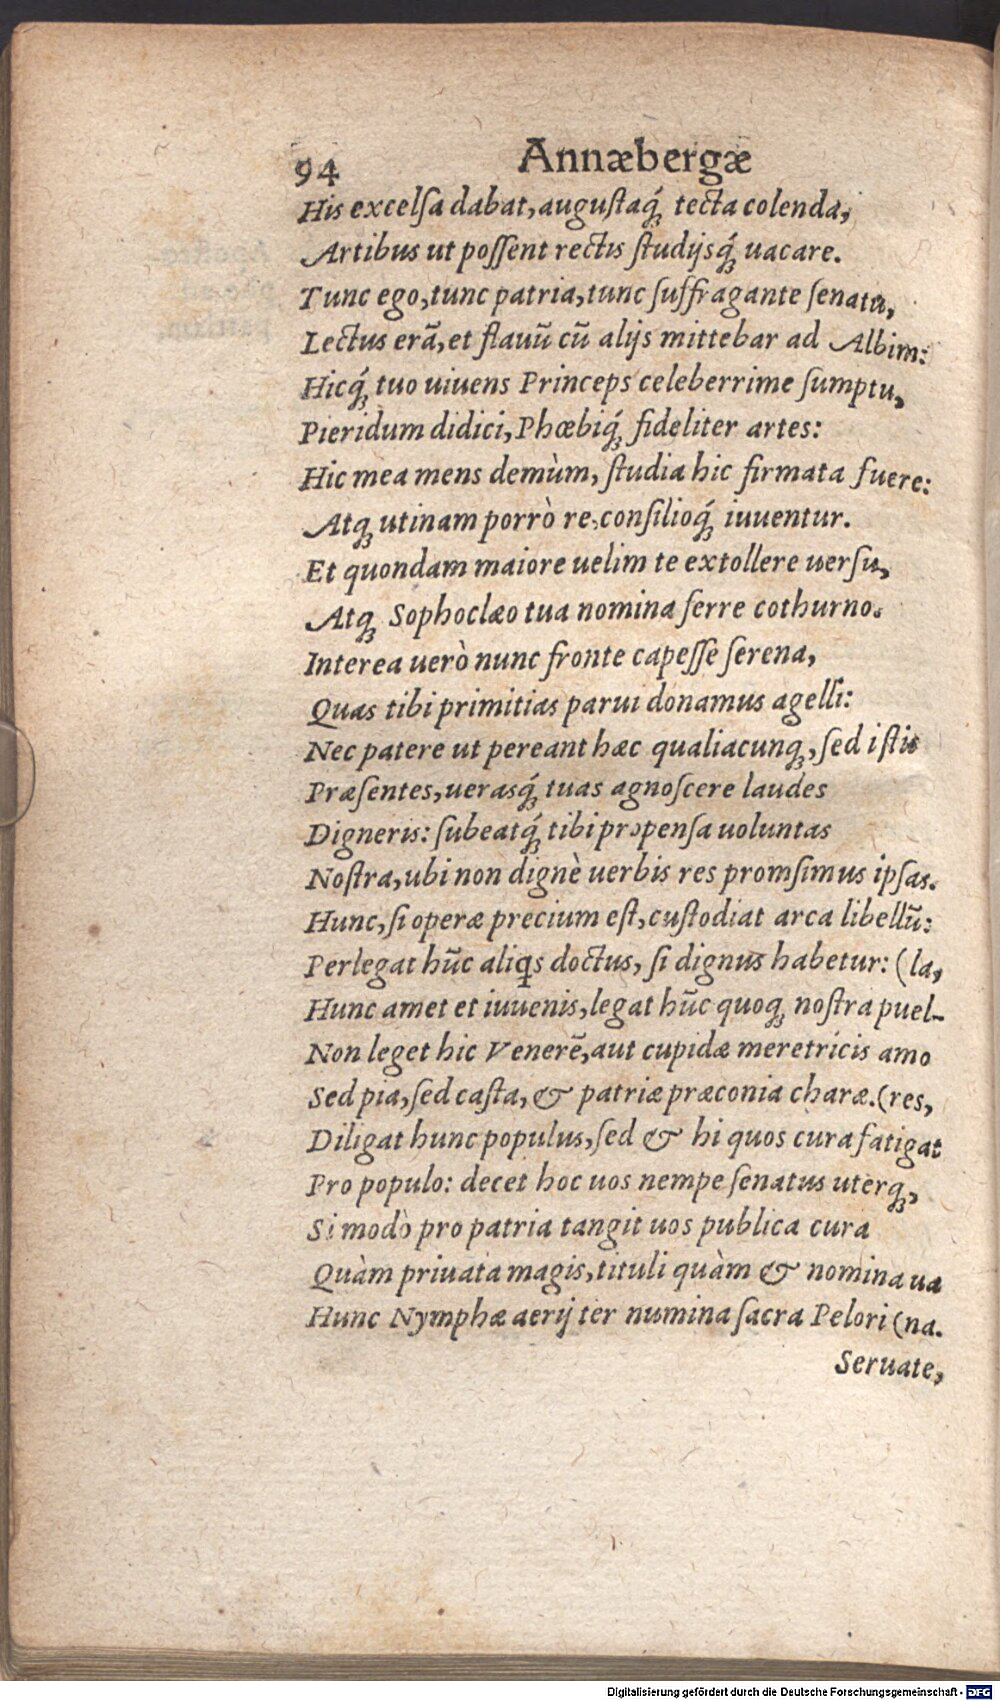 94 Annæbergæ
His excelſa dabat, auguſtaq́; tecta colenda,
Artibus ut poſſent rectis ſtudijsq́; uacare.
Tunc ego, tunc patria, tunc ſuffragante ſenatu,
Lectus erā, et flauū cū alijs mittebar ad Albim:
Hicq́; tuo uiuens Princeps celeberrime ſumptu,
Pieridum didici, Phœbiq́; fideliter artes:
Hic mea mens demùm, ſtudia hic firmata fuere:
Atq; utinam porrò re, conſilioq́; iuuentur.
Et quondam maiore uelim te extollere uerſu,
Atq; Sophoclæo tua nomina ferre cothurno.
Interea uerò nunc fronte capeſſe ſerena,
Quas tibi primitias parui donamus agelli:
Nec patere ut pereant hæc qualiacunq;, ſed iſtis
Præſentes, uerasq́; tuas agnoſcere laudes
Digneris: ſubeatq́; tibi propenſa uoluntas
Noſtra, ubi non dignè uerbis res promſimus ipſas.
Hunc, ſi operæ precium eſt, cuſtodiat arca libellū:
Perlegat hūc aliꝗs doctus, ſi dignus habetur: (la,
Hunc amet et iuuenis, legat hūc quoq; noſtra puel-
Non leget hic Venerē, aut cupidæ meretricis amo
Sed pia, ſed caſta, & patriæ præconia charæ. (res,
Diligat hunc populus, ſed & hi quos cura fatigat
Pro populo: decet hoc uos nempe ſenatus uterq;,
Si modò pro patria tangit uos publica cura
Quàm priuata magis, tituli quàm & nomina ua
Hunc Nymphæ aerij ter numina ſacra Pelori (na.
Seruate,
Digitalisierung gefördert durch die Deutsche Forschungsgemeinschaft - DFG